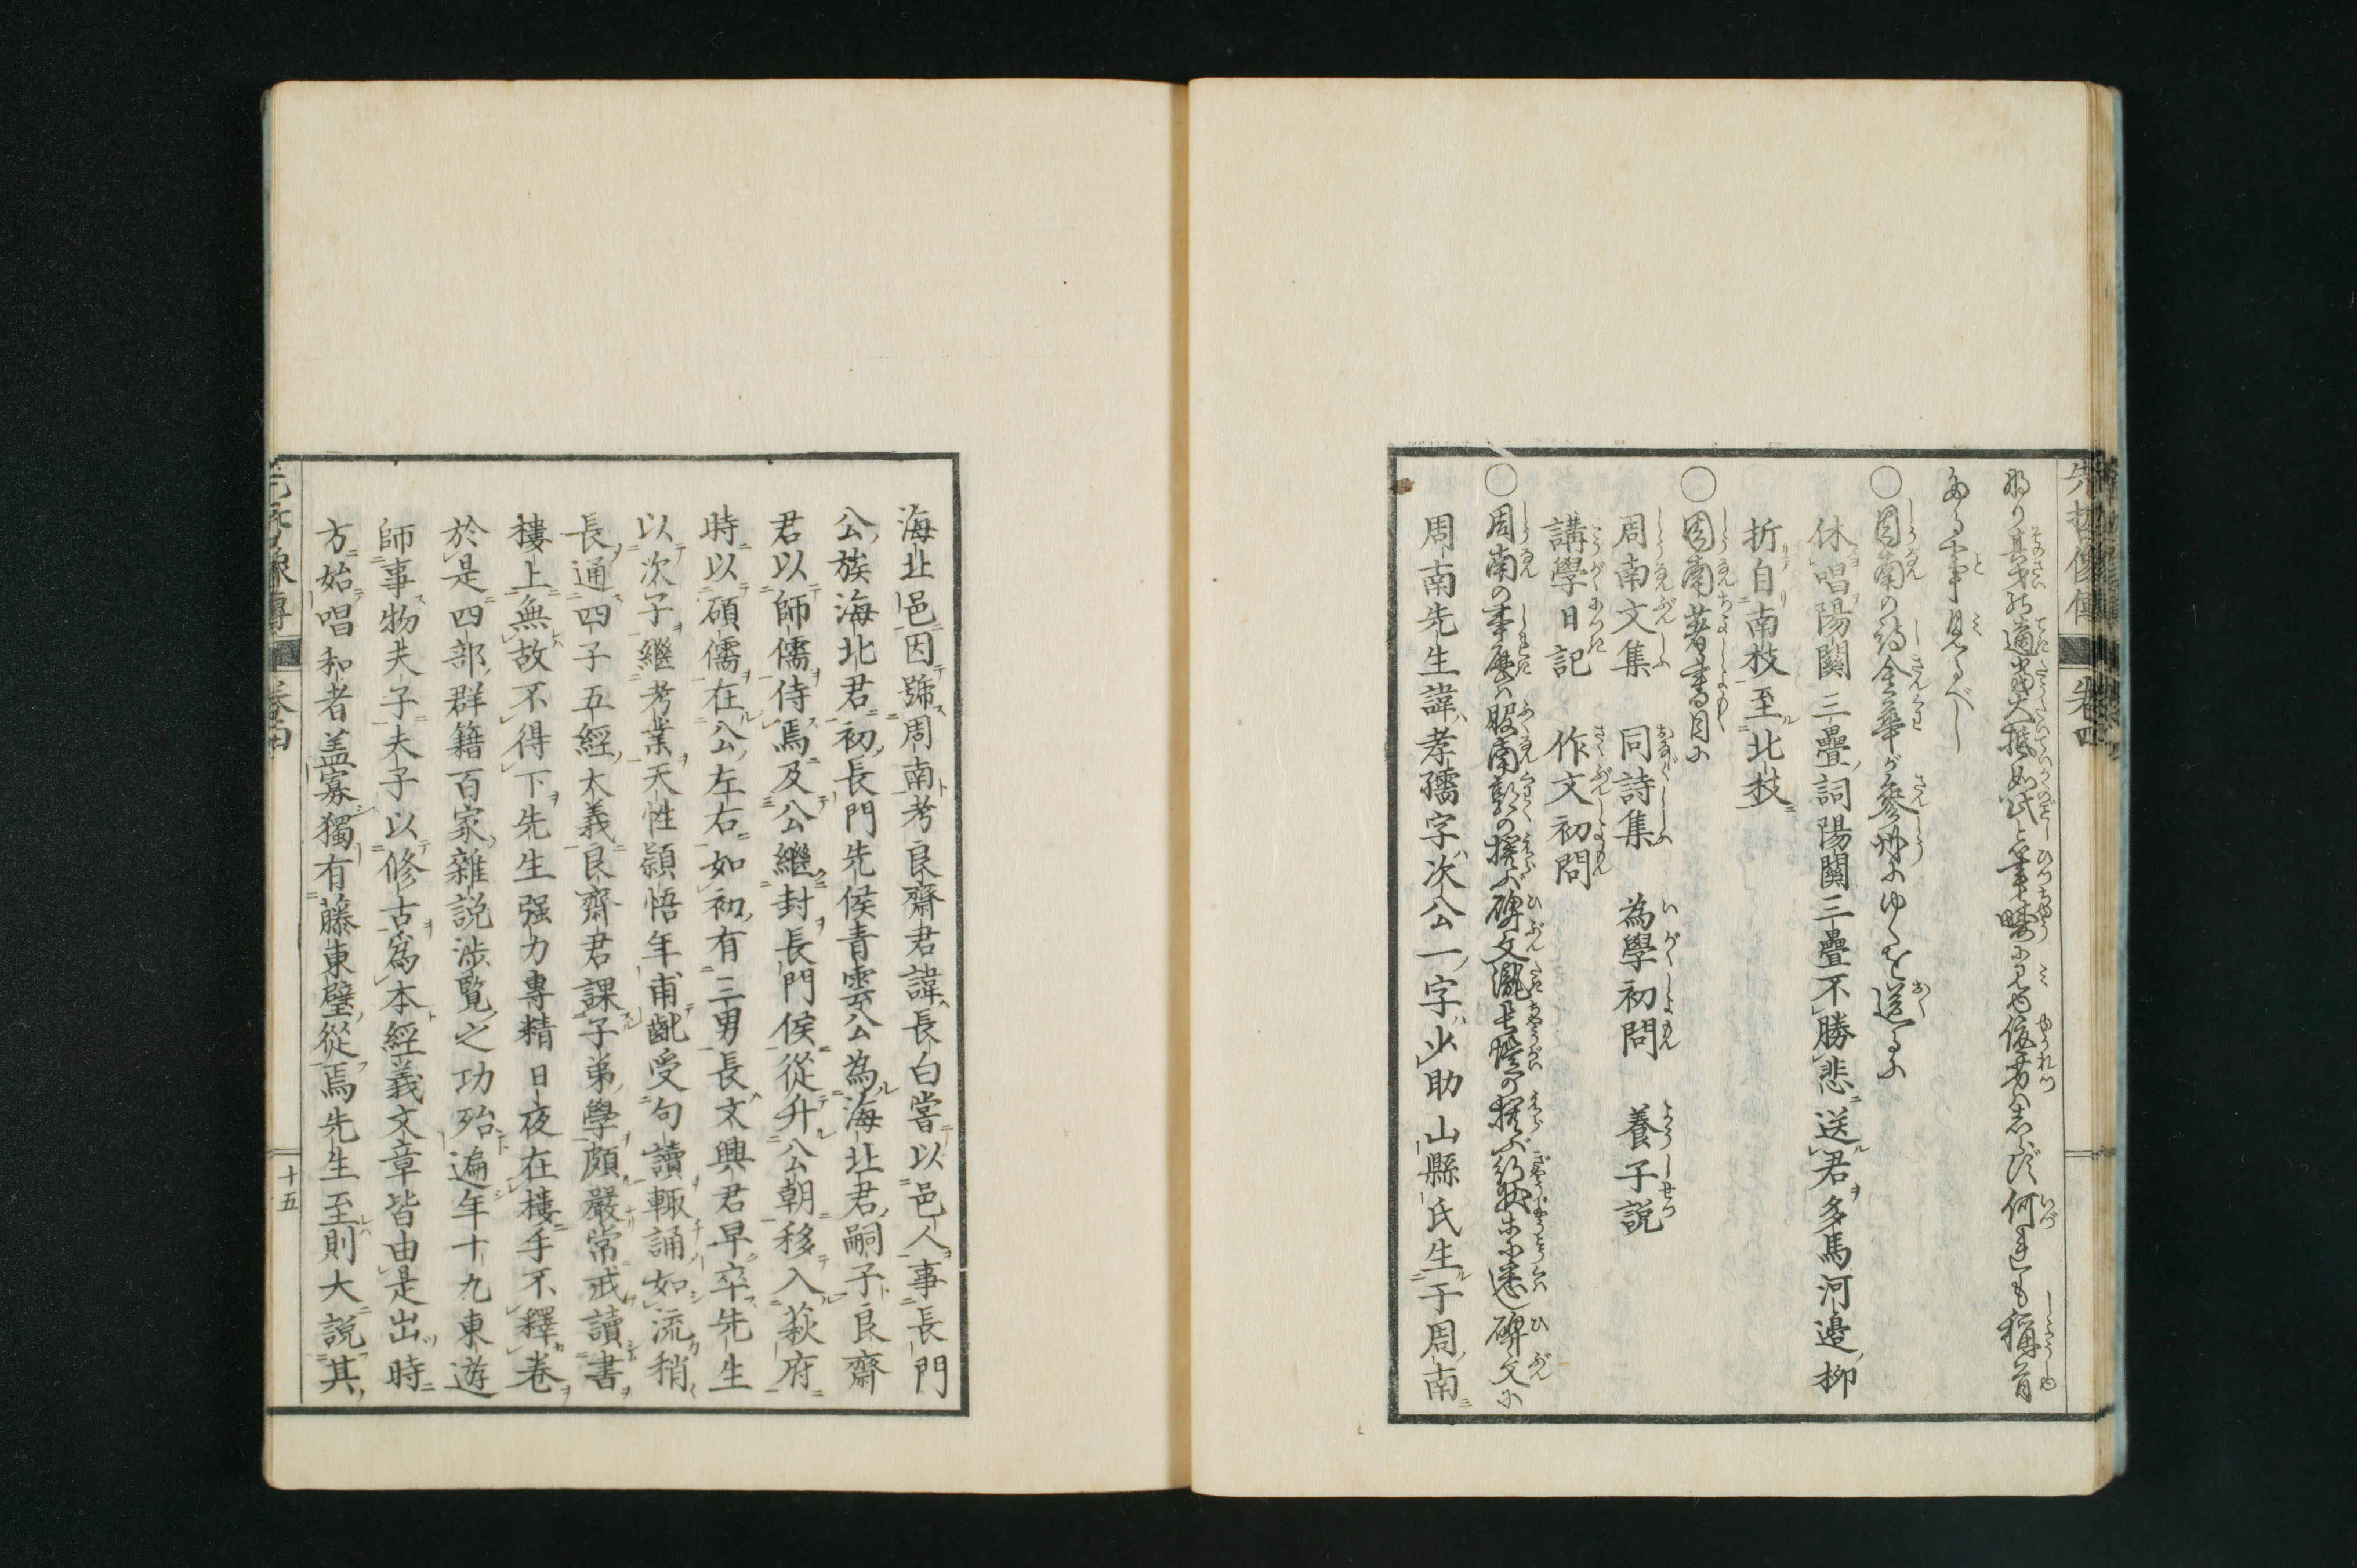 先哲像傳 卷四
ある事見るべし
○周南の詩金華が參州にゆくを送るに
休唱陽關三疊詞陽關三疊不勝悲送君多馬河邊柳
折自南枝至北枝
○周南著書目に
周南文集 同詩集 為學初問 養子説
講學日記 作文初問
○周南の事歴は服南郭の撰ぶ碑文瀧長愷の撰ぶ行状等に悉し碑文に
周南先生諱孝孺字次公一字少助山縣氏生于周南
海北邑因號周南考良齋君諱長白嘗以邑人事長門
公族海北君初長門先侯青雲公為海北君嗣子良齋
君以師儒侍焉及公繼封長門侯從升公朝移入萩府
時以碩儒在公左右如初有三男長文興君早卒先生
以次子繼考業天性頴悟年甫齔受句讀輙誦如流稍
長通四子五經大義良齋君課子弟學頗嚴常戒讀書
樓上無故不得下先生强力專精日夜在樓手不釋卷
於是四部群籍百家雜説涉覽之功殆遍年十九東遊
師事物夫子夫子以修古爲本經義文章皆由是出時
方始唱和者盖寡獨有藤東壁從焉先生至則大説其
十五